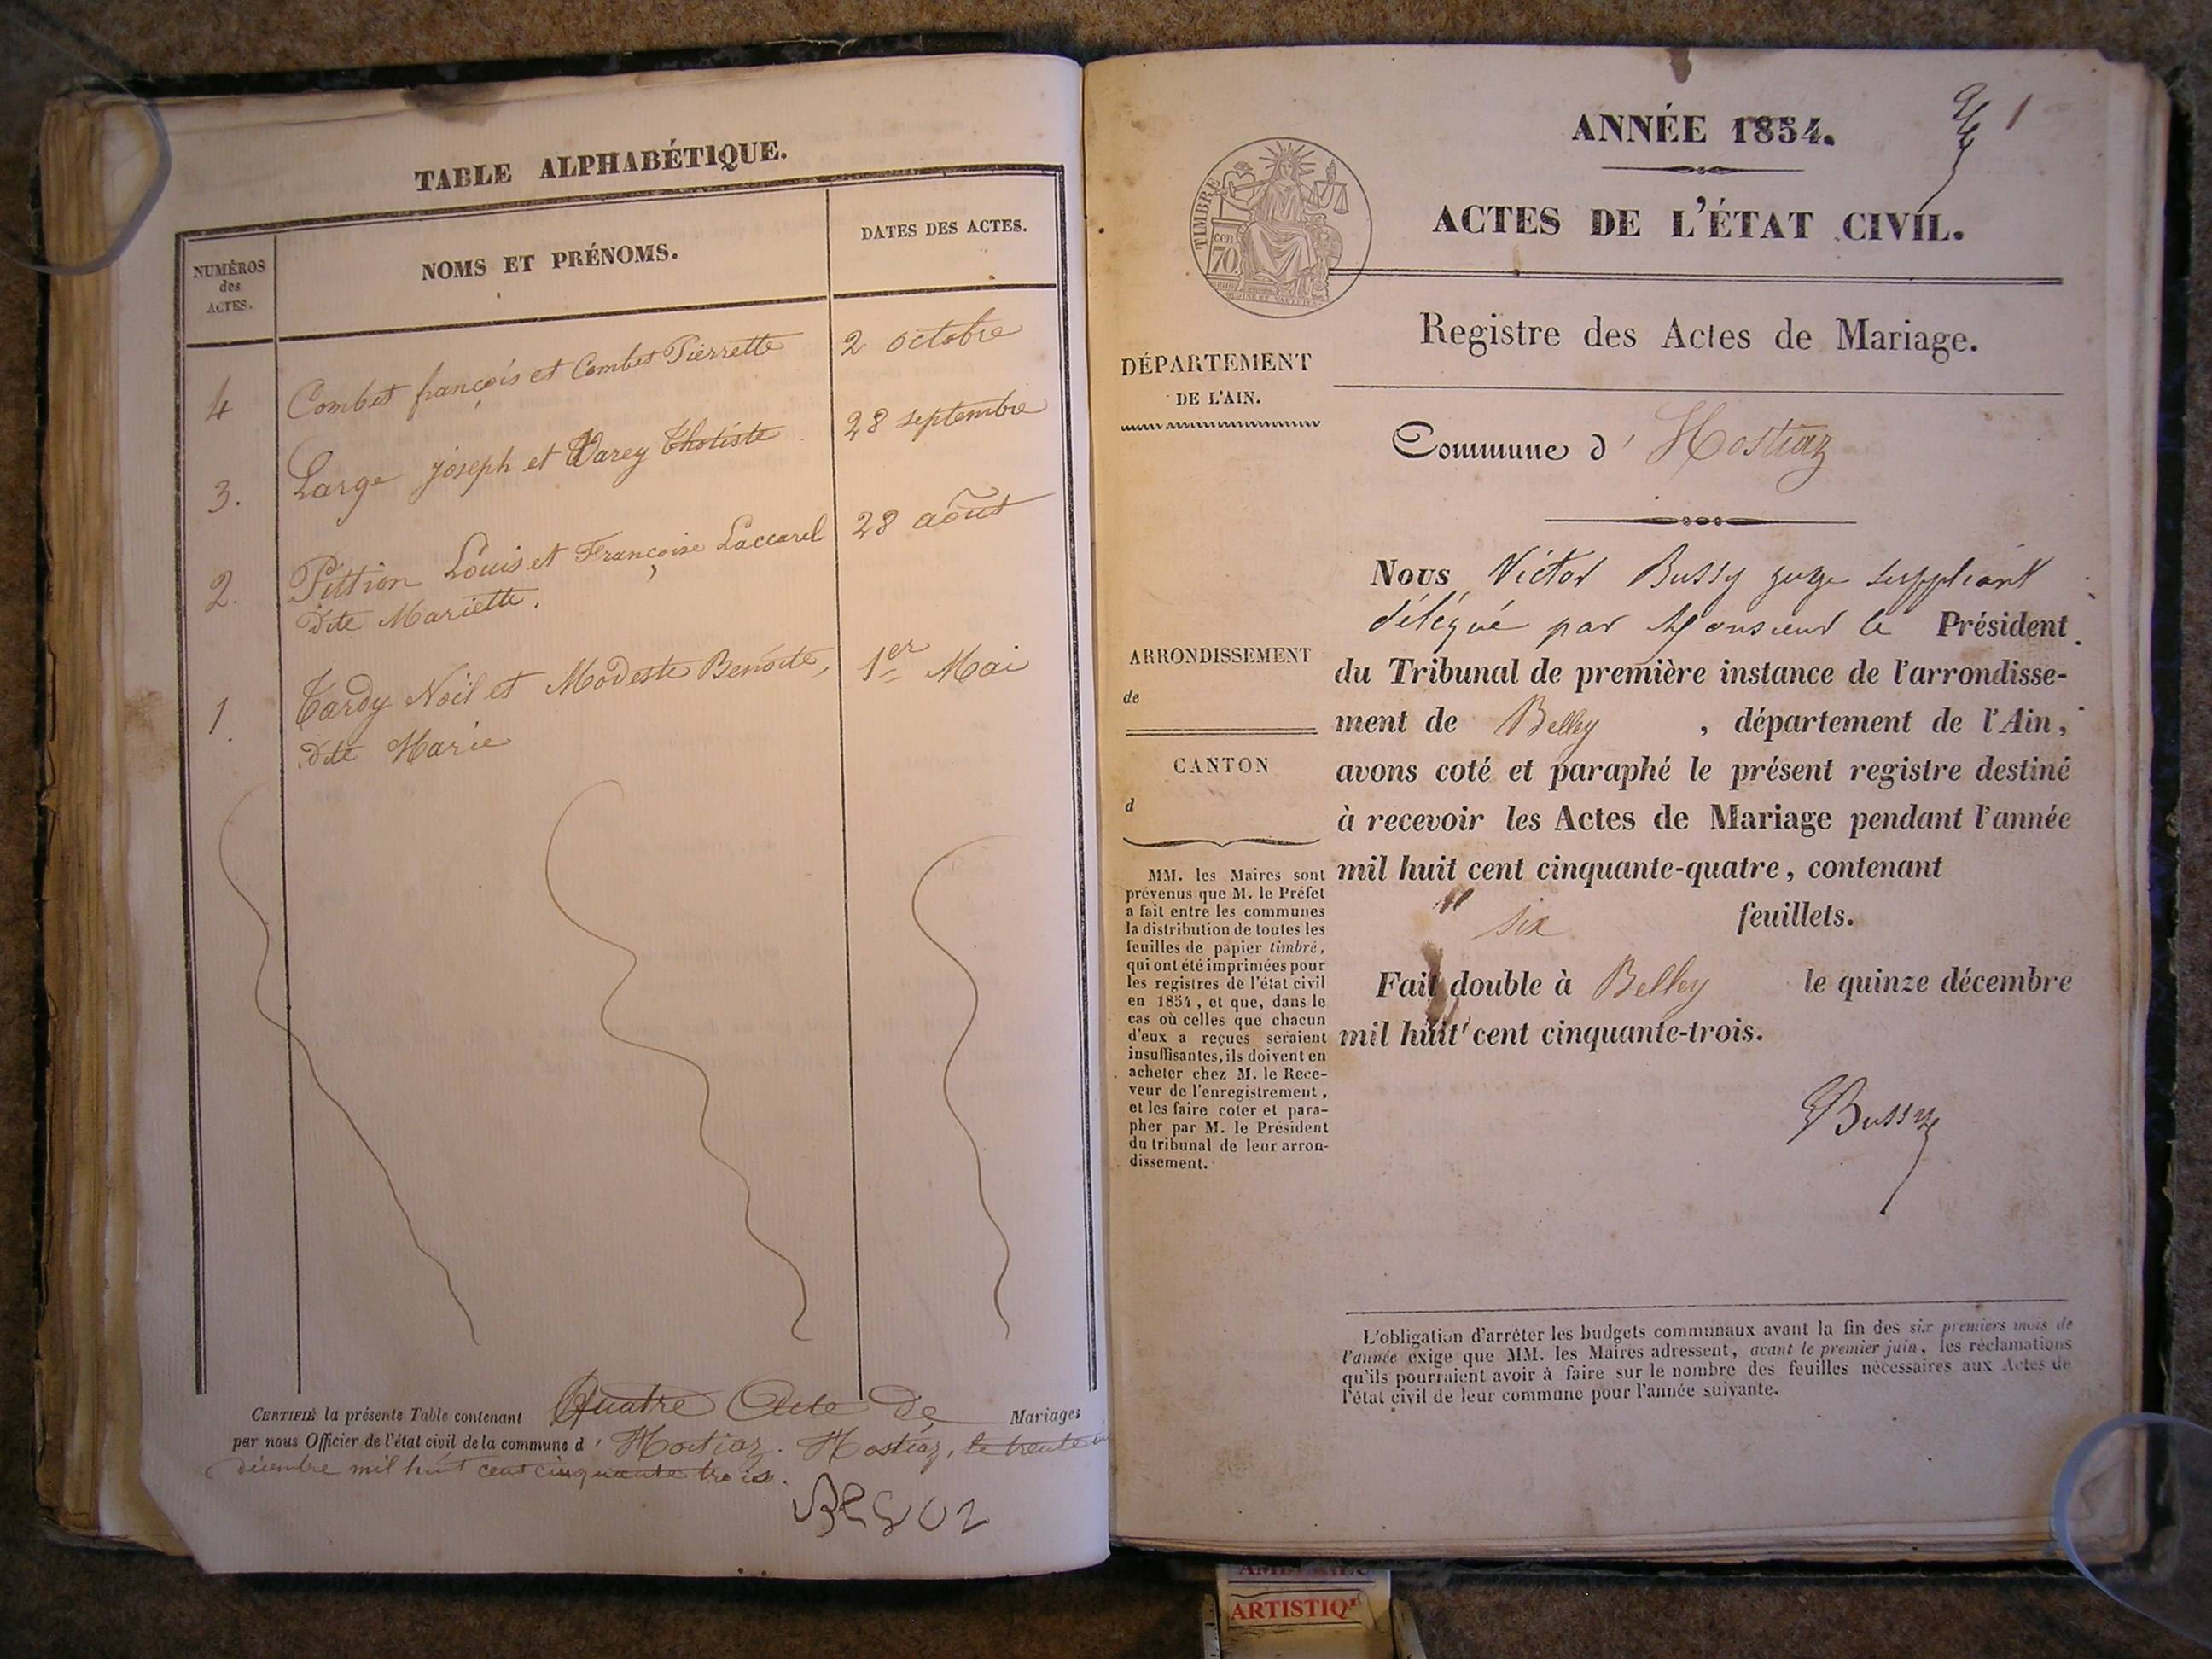 TABLE ALPHABÉTIQUE.
NUMÉROS
des
ACTES.
NOMS ET PRÉNOMS.
DATES DES ACTES.
4 Combet françois et Combet Pierrette 2 octobre
3. Large joseph et Varey Thotiste 28 septembre
2. Pittion Louis et Françoise Laccarel 28 août
dite Mariette.
1. Tardy Noil et Modeste Benoite, 1er Mai
dite Marie
CERTIFIÉ la présente Table contenant Quatre Acte de Mariages
par nous Officier de l'état civil de la commune d' Hostiaz. Hostiaz, le trente
décembre mil huit cent cinquante trois.
ANNÉE 1854.
1
ACTES DE L'ÉTAT CIVIL.
TIMBRE
cen
70
Registre des Actes de Mariage.
DÉPARTEMENT
DE L'AIN.
Commune d' Hostiaz
ARRONDISSEMENT
de
CANTON
d
MM. les Maires sont
prévenus que M. le Préfet
a fait entre les communes
la distribution de toutes les
feuilles de papier timbré,
qui ont été imprimées pour
les registres de l'état civil
en 1854, et que, dans le
cas où celles que chacun
d'eux a reçues seraient
insuffisantes, ils doivent en
acheter chez M. le Rece-
veur de l'enregistrement,
et les faire coter et para-
pher par M. le Président
du tribunal de leur arron-
dissement.
Nous Victor Bussy juge suppléant
délégué par Monsieur le Président
du Tribunal de première instance de l'arrondisse-
ment de Belley , département de l'Ain,
avons coté et paraphé le présent registre destiné
à recevoir les Actes de Mariage pendant l'année
mil huit cent cinquante-quatre, contenant
six feuillets.
Fait double à Belley le quinze décembre
mil huit cent cinquante-trois.
Bussy
L'obligation d'arrêter les budgets communaux avant la fin des six premiers mois de
l'année exige que MM. les Maires adressent, avant le premier juin, les réclamations
qu'ils pourraient avoir à faire sur le nombre des feuilles nécessaires aux Actes de
l'état civil de leur commune pour l'année suivante.
ARTISTIQ